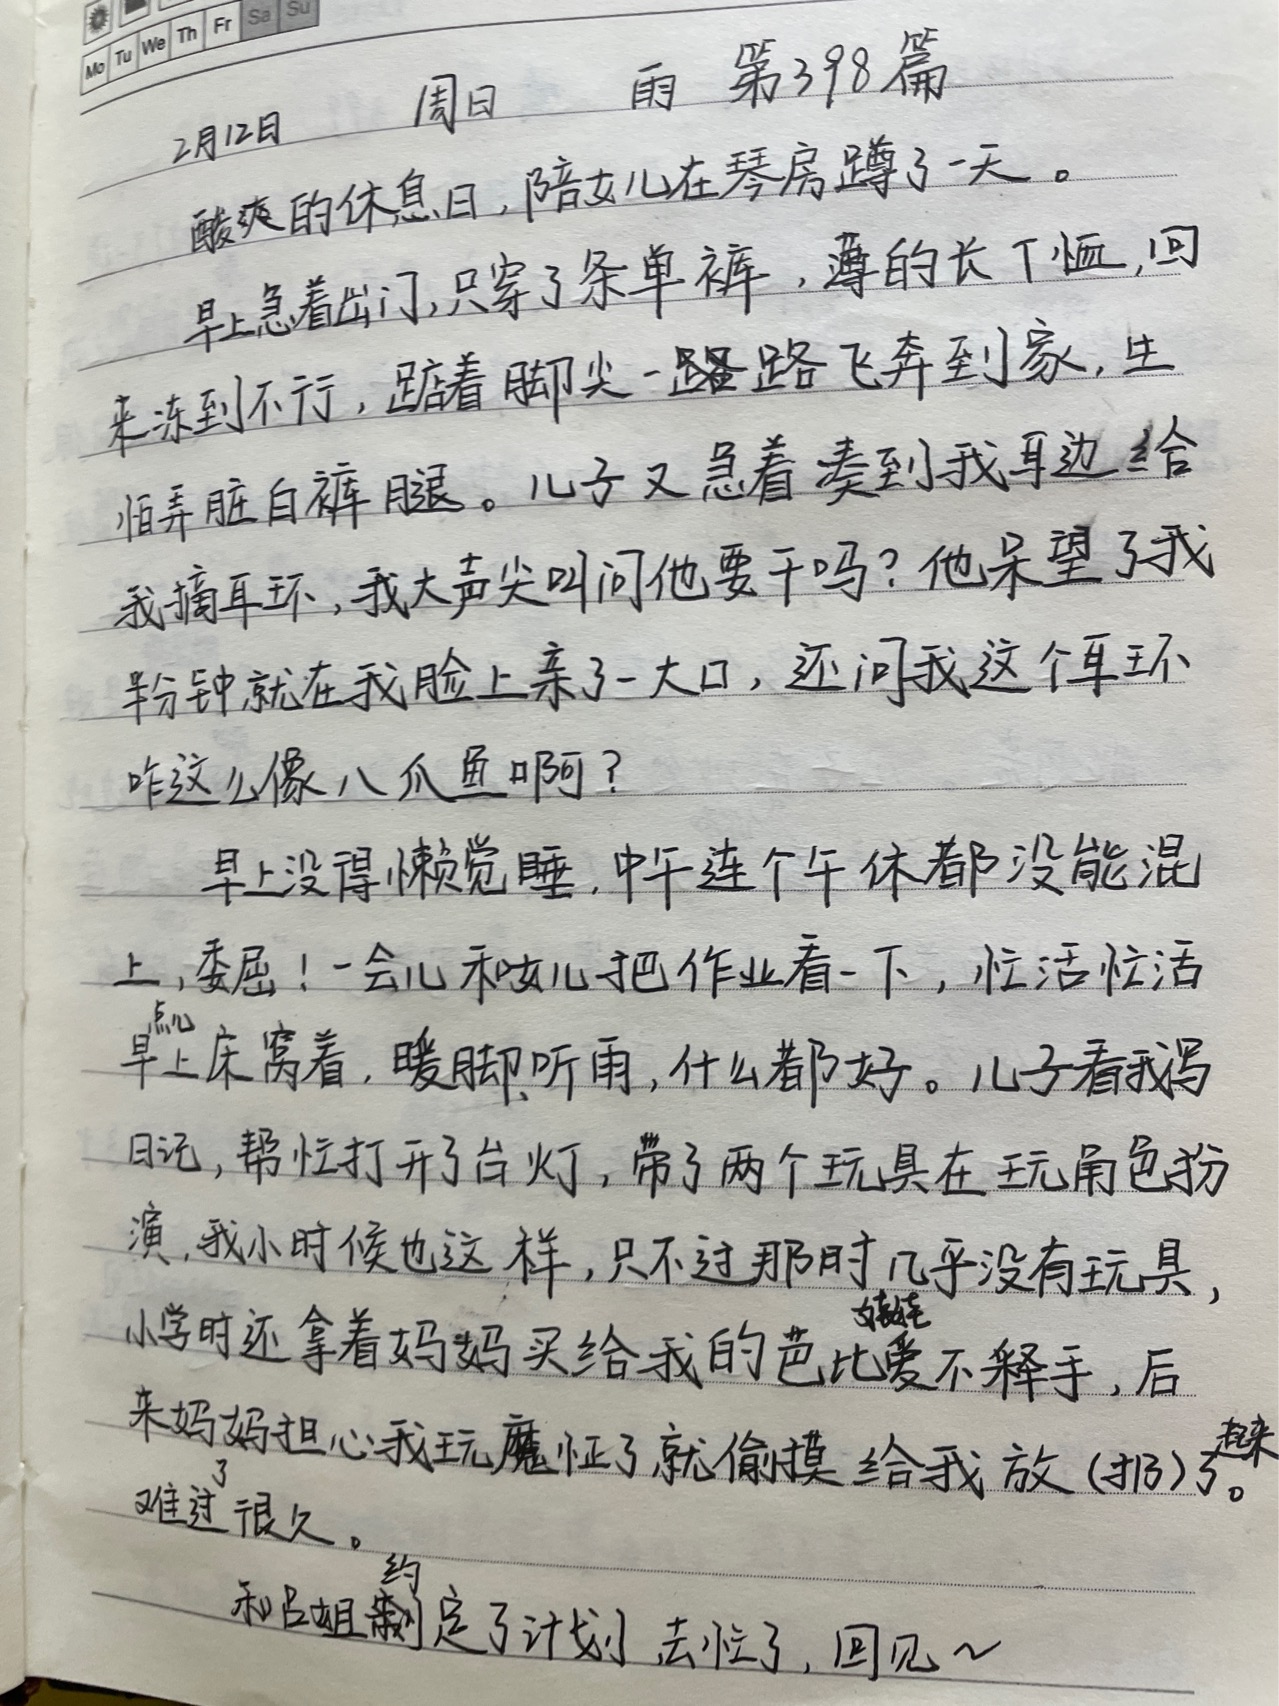 Mo Tu We Th Fr Sa Su
2月12日 周日 雨 第398篇
酸爽的休息日，陪女儿在琴房蹲了一天。
早上急着出门，只穿了条单裤，薄的长T恤，回
来冻到不行，踮着脚尖一路路飞奔到家，生
怕弄脏白裤腿。儿子又急着凑到我耳边给
我摘耳环，我大声尖叫问他要干吗？他呆望了我
半分钟就在我脸上亲了一大口，还问我这个耳环
咋这么像八爪鱼啊？
早上没得懒觉睡，中午连个午休都没能混
上，委屈！一会儿和女儿把作业看一下，忙活忙活
早点儿上床窝着，暖脚听雨，什么都好。儿子看我写
日记，帮忙打开了台灯，带了两个玩具在玩角色扮
演，我小时候也这样，只不过那时几乎没有玩具，
小学时还拿着妈妈买给我的芭比娃娃爱不释手，后
来妈妈担心我玩魔怔了就偷摸给我放（扔）了起来。
难过了很久。
和吕姐约定了计划 去忙了，回见～